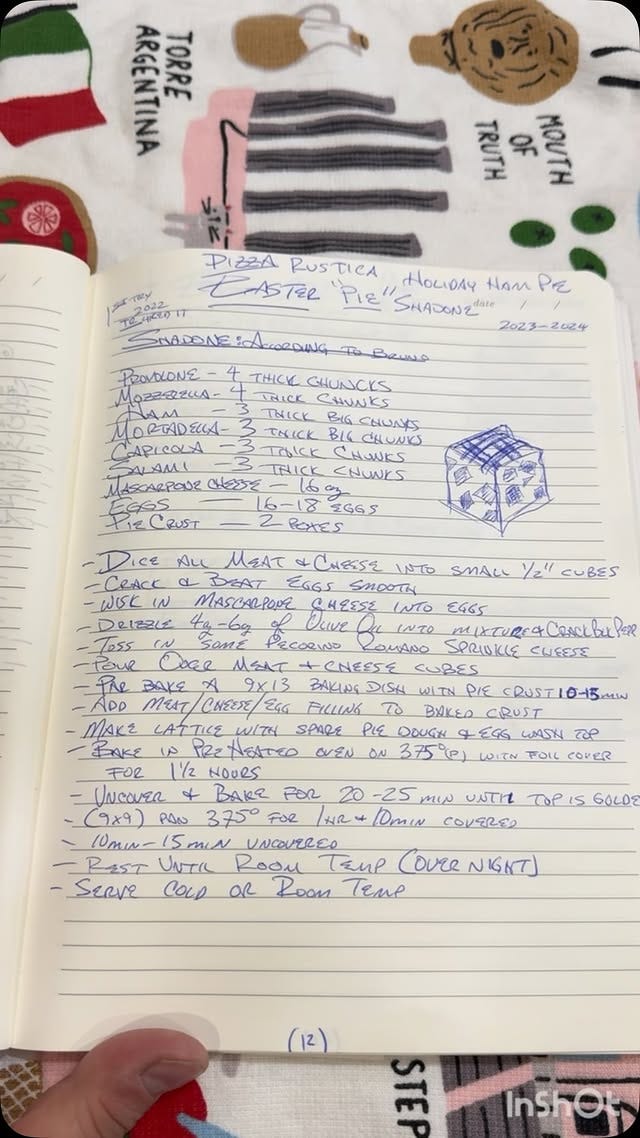 TORRE
ARGENTINA
MOUTH
OF
TRUTH
PIZZA RUSTICA HOLIDAY HAM PIE
EASTER "PIE" SHADONE date / /
1ST TRY
2022
2023-2024
SHADONE: ACCORDING TO BRUNO
PROVOLONE - 4 THICK CHUNCKS
MOZZERELLA - 4 THICK CHUNKS
HAM - 3 THICK BIG CHUNKS
MORTADELLA - 3 THICK BIG CHUNKS
CAPICOLA - 3 THICK CHUNKS
SALAMI - 3 THICK CHUNKS
MASCARPONE CHEESE - 16 oz
EGGS - 16-18 EGGS
PIE CRUST - 2 BOXES
- DICE ALL MEAT & CHEESE INTO SMALL 1/2" CUBES
- CRACK & BEAT EGGS SMOOTH
- WISK IN MASCARPONE CHEESE INTO EGGS
- DRIZZLE 4g-6g OF OLIVE OIL INTO MIXTURE & CRACK BLK PEPR
- TOSS IN SOME PECORINO ROMANO SPRINKLE CHEESE
- POUR OVER MEAT & CHEESE CUBES
- PRE BAKE A 9X13 BAKING DISH WITH PIE CRUST 10-15 MIN
- ADD MEAT/CHEESE/EGG FILLING TO BAKED CRUST
- MAKE LATTICE WITH SPARE PIE DOUGH & EGG WASH TOP
- BAKE IN PREHEATED OVEN ON 375°(F) WITH FOIL COVER
FOR 1 1/2 HOURS
- UNCOVER & BAKE FOR 20-25 MIN UNTIL TOP IS GOLDE
- (9x9) PAN 375° FOR 1HR & 10MIN COVERED
- 10MIN-15MIN UNCOVERED
- REST UNTIL ROOM TEMP (OVER NIGHT)
- SERVE COLD OR ROOM TEMP
(12)
STEP
InShOt